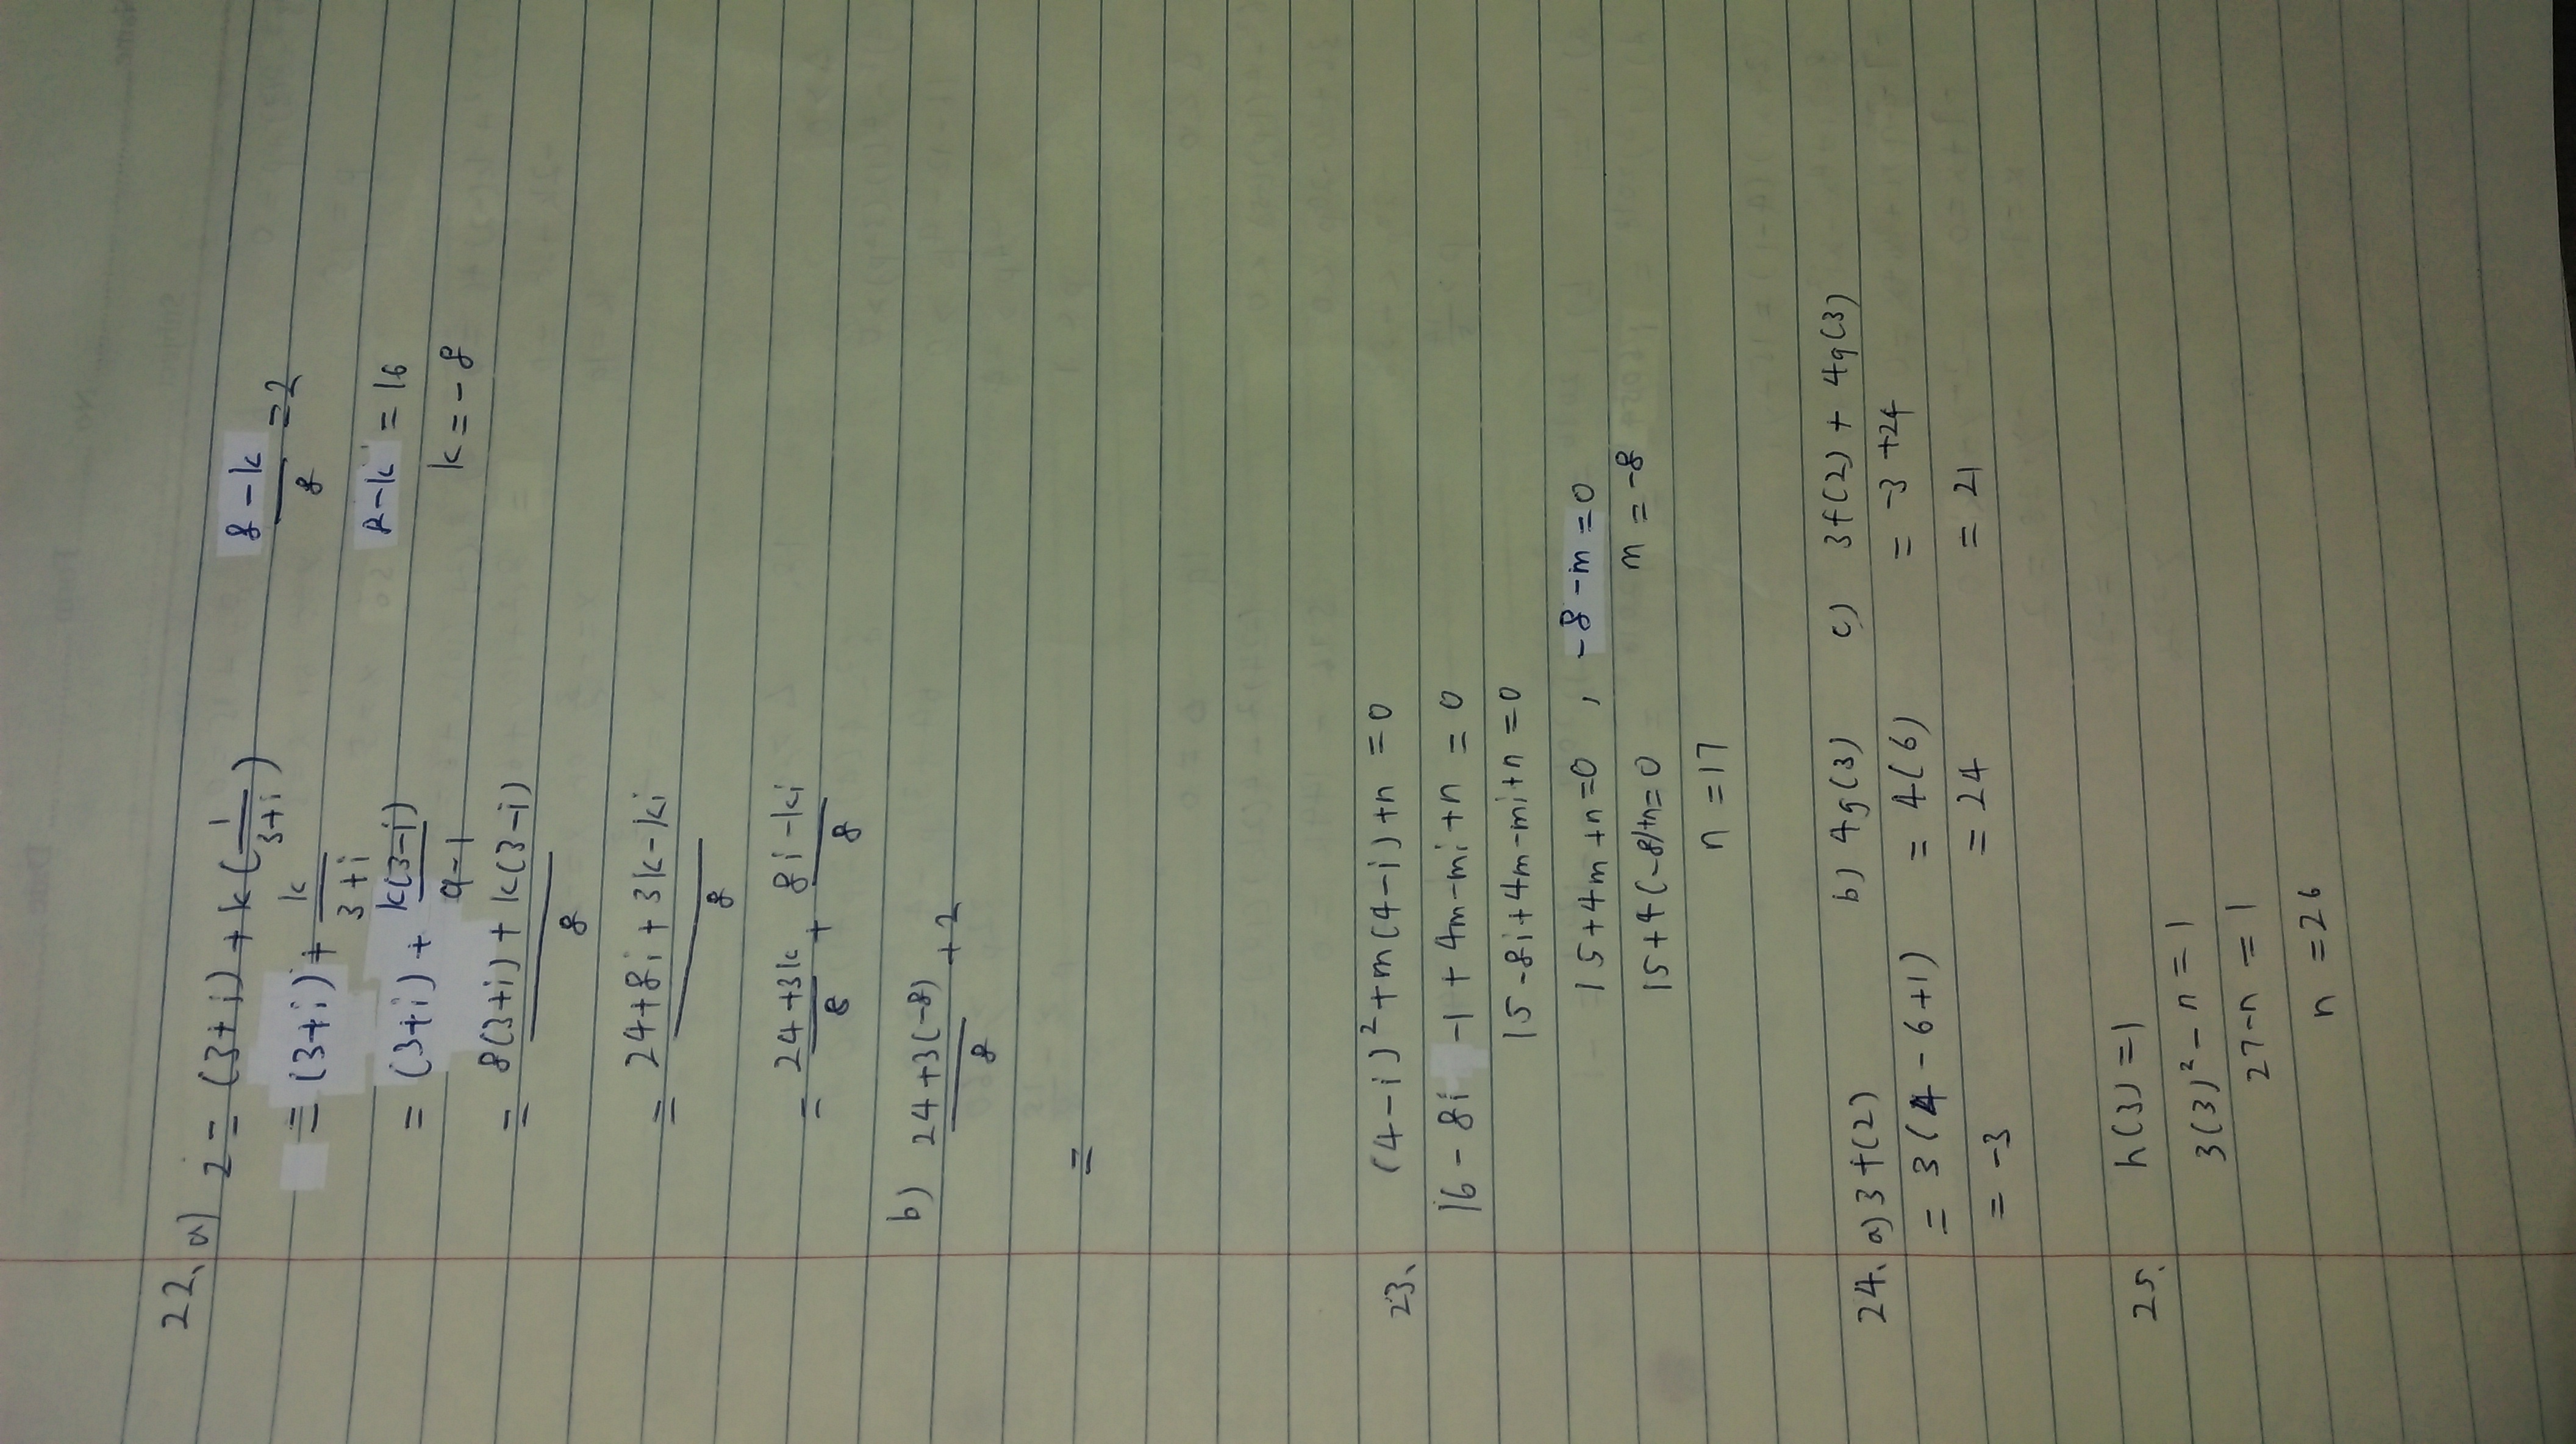 22. a) z = (3+i) + k(1/(3+i))
= (3+i) + k/(3+i)
= (3+i) + k(3-i)/(9-1)
= (8(3+i) + k(3-i))/8
= (24+8i+3k-ki)/8
= (24+3k)/8 + (8i-ki)/8
(8-k)/8 = 2
8-k = 16
k = -8
b) (24+3(-8))/8 + 2
=
23. (4-i)² + m(4-i) + n = 0
16 - 8i - 1 + 4m - mi + n = 0
15 - 8i + 4m - mi + n = 0
15 + 4m + n = 0 , -8 - m = 0
15 + 4(-8)+n = 0 m = -8
n = 17
24. a) 3f(2)
= 3(4 - 6 + 1)
= -3
b) 4g(3)
= 4(6)
= 24
c) 3f(2) + 4g(3)
= -3 + 24
= 21
25. h(3) = 1
3(3)² - n = 1
27 - n = 1
n = 26